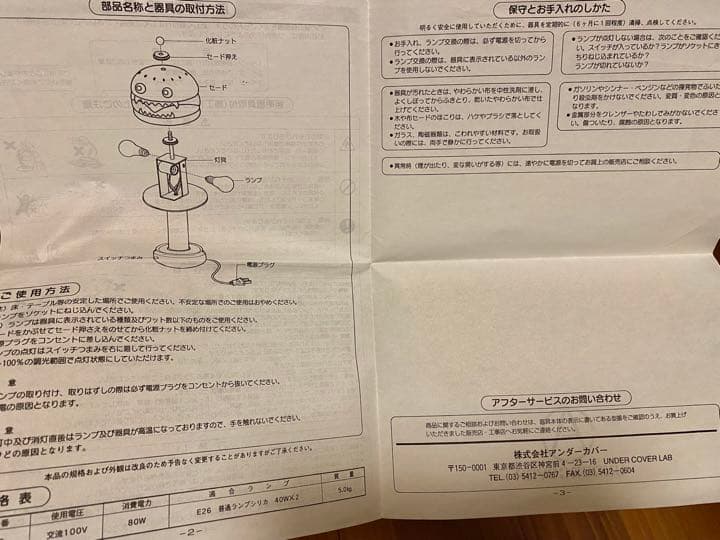 部品名称と器具の取付方法
化粧ナット
セード押え
セード
灯具
ランプ
スイッチつまみ
電源プラグ
ご使用方法
床・テーブル等の安定した場所でご使用ください。不安定な場所でのご使用はおやめください。
ンプをソケットにねじ込んでください。
ランプは器具に表示されている種類及びワット数以下のものをご使用ください。
ードをかぶせてセード押さえをのせてから化粧ナットを締め付けてください。
源プラグをコンセントに差し込んでください。
プの点灯はスイッチつまみを右に廻して行います。
~100%の調光範囲で点灯状態にしていただけます。
意
ンプの取り付け、取りはずしの際は必ず電源プラグをコンセントから抜いてください。
電の原因となります。
意
灯中及び消灯直後はランプ及び器具が高温になっておりますので、手を触れないでください。
けどの原因となります。
本品の規格および外観は改良のため予告なく変更することがありますがご了承ください。
格表
番 使用電圧 消費電力 適合ランプ 質量
交流100V 80W E26 普通ランプシリカ 40W×2 5.0kg
-2-
保守とお手入れのしかた
明るく安全に使用していただくために、器具を定期的に(6ヶ月に1回程度)清掃、点検してください。
●お手入れ、ランプ交換の際は、必ず電源を切ってから
行ってください。
●ランプ交換の際は、器具に表示されている以外のランプ
を使用しないでください。
●ランプが点灯しない場合は、次のことをご確認くだ
い。スイッチが入っているか?ランプがソケットにき
ちりねじ込まれているか?
ランプが切れていないか?
●器具が汚れたときは、やわらかい布を中性洗剤に浸し、
よくしぼってからふきとり、乾いたやわらかい布で仕
上げてください。
●水や布セードのほこりは、ハケやブラシで落としてく
ださい。
●ガラス、陶磁器類は、こわれやすい材料です。お取扱
いの際には、両手で静かに行ってください。
●ガソリンやシンナー・ベンジンなどの揮発物でふいた
り殺虫剤をかけないでください。変質・変色の原因と
なります。
●金属部分をクレンザーやたわしでみがかないでくださ
い。傷ついたり、腐蝕の原因となります。
●異常時(煙が出たり、変な臭いがする等)には、速やかに電源を切ってお買上の販売店にご相談ください。
アフターサービスのお問い合わせ
商品に関するご相談およびお問い合わせは、器具本体の表示に書いてある型番をご確認のうえ、お買上げ
いただきました販売店・工事店へお気軽にご連絡ください。
株式会社アンダーカバー
〒150-0001 東京都渋谷区神宮前4-23-16 UNDER COVER LAB
TEL.(03)5412-0767 FAX.(03)5412-0604
-3-